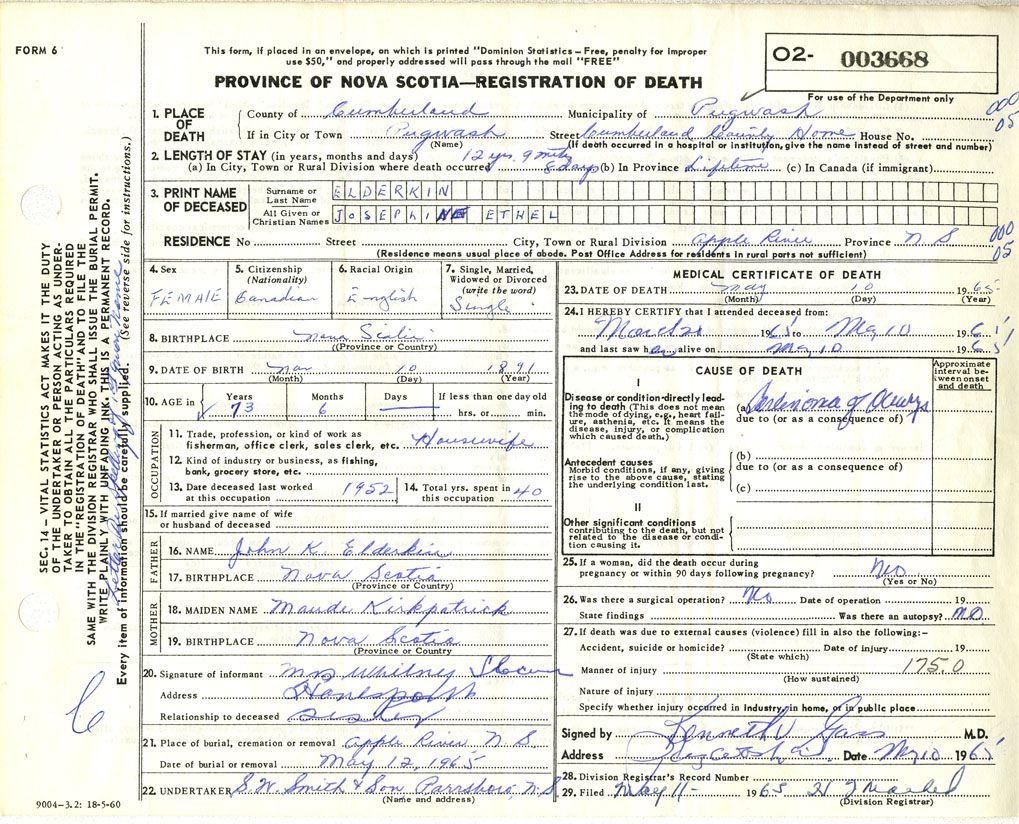 FORM 6
This form, if placed in an envelope, on which is printed "Dominion Statistics – Free, penalty for improper
use $50," and properly addressed will pass through the mail "FREE"
PROVINCE OF NOVA SCOTIA—REGISTRATION OF DEATH
O2- 003668
For use of the Department only
1. PLACE OF DEATH
County of Cumberland Municipality of Pugwash
000
05
If in City or Town Pugwash Street Cumberland County Home House No.
(Name) (If death occurred in a hospital or institution, give the name instead of street and number)
2. LENGTH OF STAY (in years, months and days) 12 yrs. 9 mths
(a) In City, Town or Rural Division where death occurred 8 days (b) In Province Lifetime (c) In Canada (if immigrant)
3. PRINT NAME OF DECEASED
Surname or Last Name ELDERKIN
All Given or Christian Names JOSEPHINE ETHEL
RESIDENCE No Street City, Town or Rural Division Apple River Province N. S
000
05
(Residence means usual place of abode. Post Office Address for residents in rural parts not sufficient)
4. Sex
FEMALE
5. Citizenship
(Nationality)
Canadian
6. Racial Origin
English
7. Single, Married, Widowed or Divorced
(write the word)
Single
8. BIRTHPLACE Nova Scotia
((Province or Country)
9. DATE OF BIRTH Nov 10 1891
(Month) (Day) (Year)
10. AGE in Years Months Days If less than one day old
73 6 hrs. or min.
OCCUPATION
11. Trade, profession, or kind of work as
fisherman, office clerk, sales clerk, etc. Housewife
12. Kind of industry or business, as fishing,
bank, grocery store, etc.
13. Date deceased last worked
at this occupation 1952
14. Total yrs. spent in
this occupation 40
15. If married give name of wife
or husband of deceased
FATHER
16. NAME John K. Elderkin
17. BIRTHPLACE Nova Scotia
(Province or Country)
MOTHER
18. MAIDEN NAME Maude Kirkpatrick
19. BIRTHPLACE Nova Scotia
(Province or Country
20. Signature of informant Mrs Whitney Slocum
Address Hantsport
Relationship to deceased Sister
21. Place of burial, cremation or removal Apple River N S
Date of burial or removal May 12, 1965
22. UNDERTAKER S. W. Smith & Son Parrsboro, N. S
(Name and address)
MEDICAL CERTIFICATE OF DEATH
23. DATE OF DEATH May 10 1965
(Month) (Day) (Year)
24. I HEREBY CERTIFY that I attended deceased from:
March 20 1965 to May 10 1965
and last saw h alive on May 10 1965
CAUSE OF DEATH
Approximate interval between onset and death
I
Disease or condition directly leading to death (This does not mean the mode of dying, e.g., heart failure, asthenia, etc. It means the disease, injury, or complication which caused death.)
(a) Carcinoma of Ovarys
due to (or as a consequence of)
Antecedent causes
Morbid conditions, if any, giving rise to the above cause, stating the underlying condition last.
(b)
due to (or as a consequence of)
(c)
II
Other significant conditions
contributing to the death, but not related to the disease or condition causing it.
25. If a woman, did the death occur during
pregnancy or within 90 days following pregnancy? No
(Yes or No)
26. Was there a surgical operation? No Date of operation 19
State findings Was there an autopsy? No
27. If death was due to external causes (violence) fill in also the following:–
Accident, suicide or homicide? Date of injury 19
(State which)
Manner of injury 175.0
(How sustained)
Nature of injury
Specify whether injury occurred in industry, in home, or in public place
Signed by Kenneth V Gass M.D.
Address Date May 10 1965
28. Division Registrar's Record Number
29. Filed May 11- 1965
(Division Registrar)
SEC. 14 – VITAL STATISTICS ACT MAKES IT THE DUTY
OF THE UNDERTAKER OR PERSON ACTING AS UNDER-
TAKER TO OBTAIN ALL THE PARTICULARS REQUIRED
IN THE "REGISTRATION OF DEATH" AND TO FILE THE
SAME WITH THE DIVISION REGISTRAR WHO SHALL ISSUE THE BURIAL PERMIT.
WRITE PLAINLY WITH UNFADING INK. THIS IS A PERMANENT RECORD.
Letter re spelling of given name
Every item of information should be carefully supplied. (See reverse side for instructions.)
9004–3.2: 18-5-60